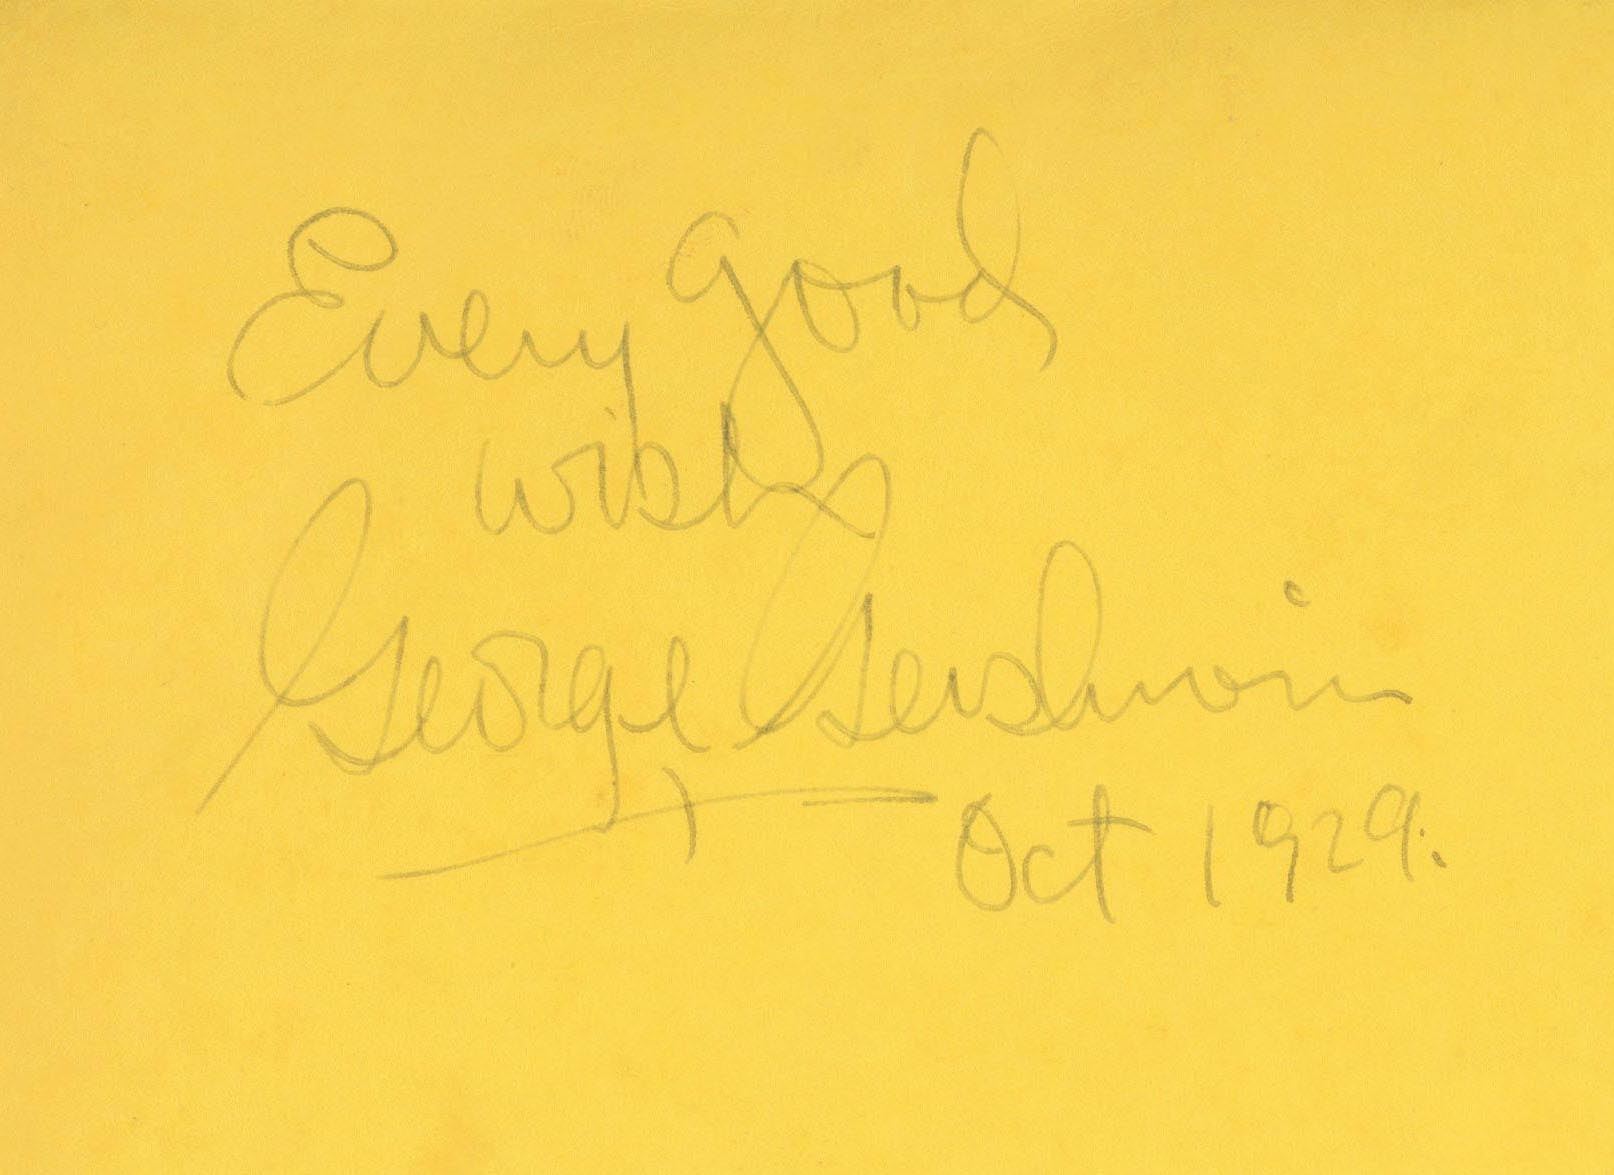 Every good
wish
George Gershwin
Oct 1929.